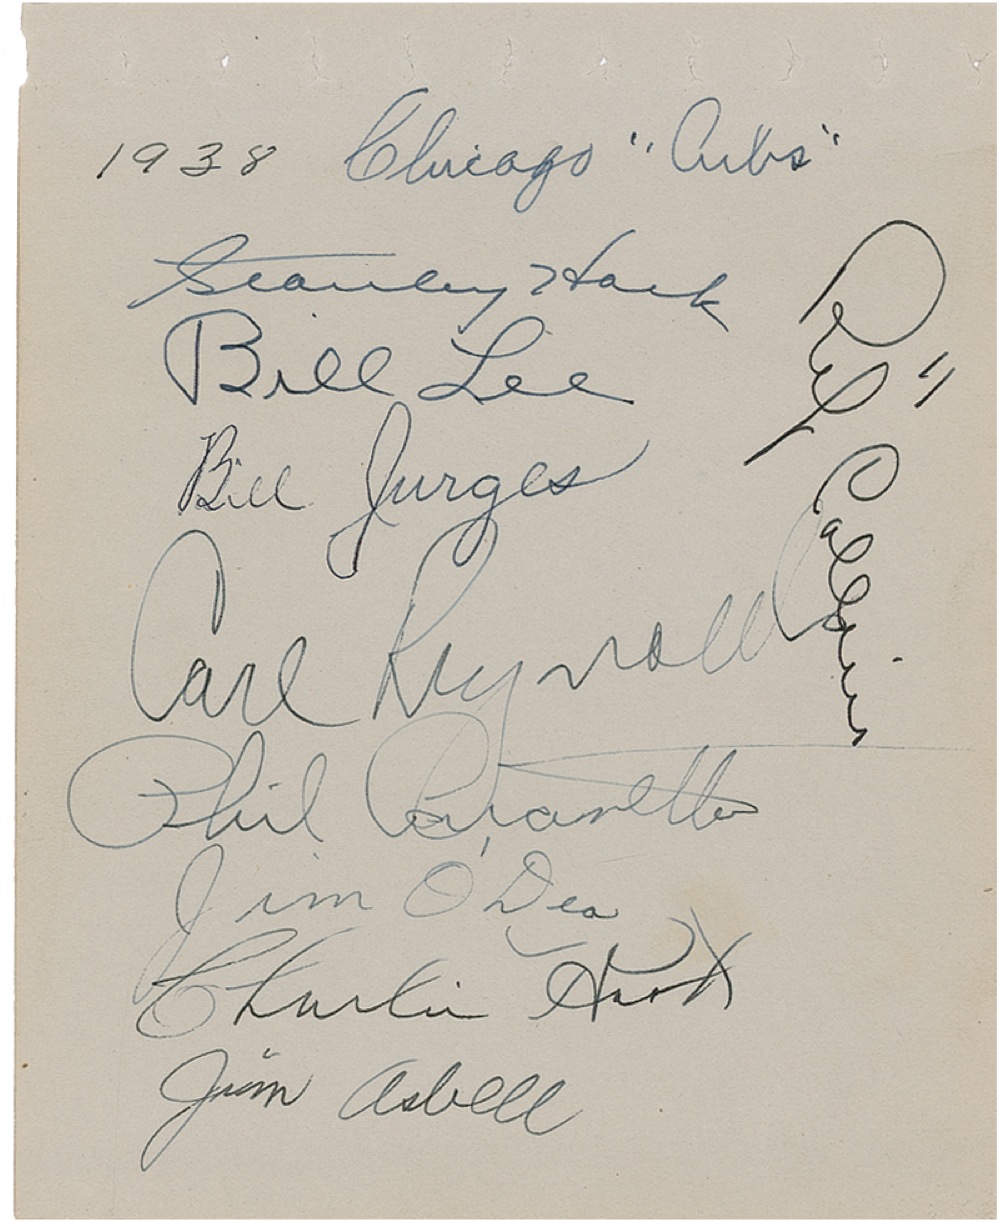 1938 Chicago "Cubs"
Stanley Hack
Bill Lee
Bill Jurges
Carl Reynolds
Phil Cavarretta
Jim O'Dea
Charlie Root
Jim Asbell
"Rip" Collins